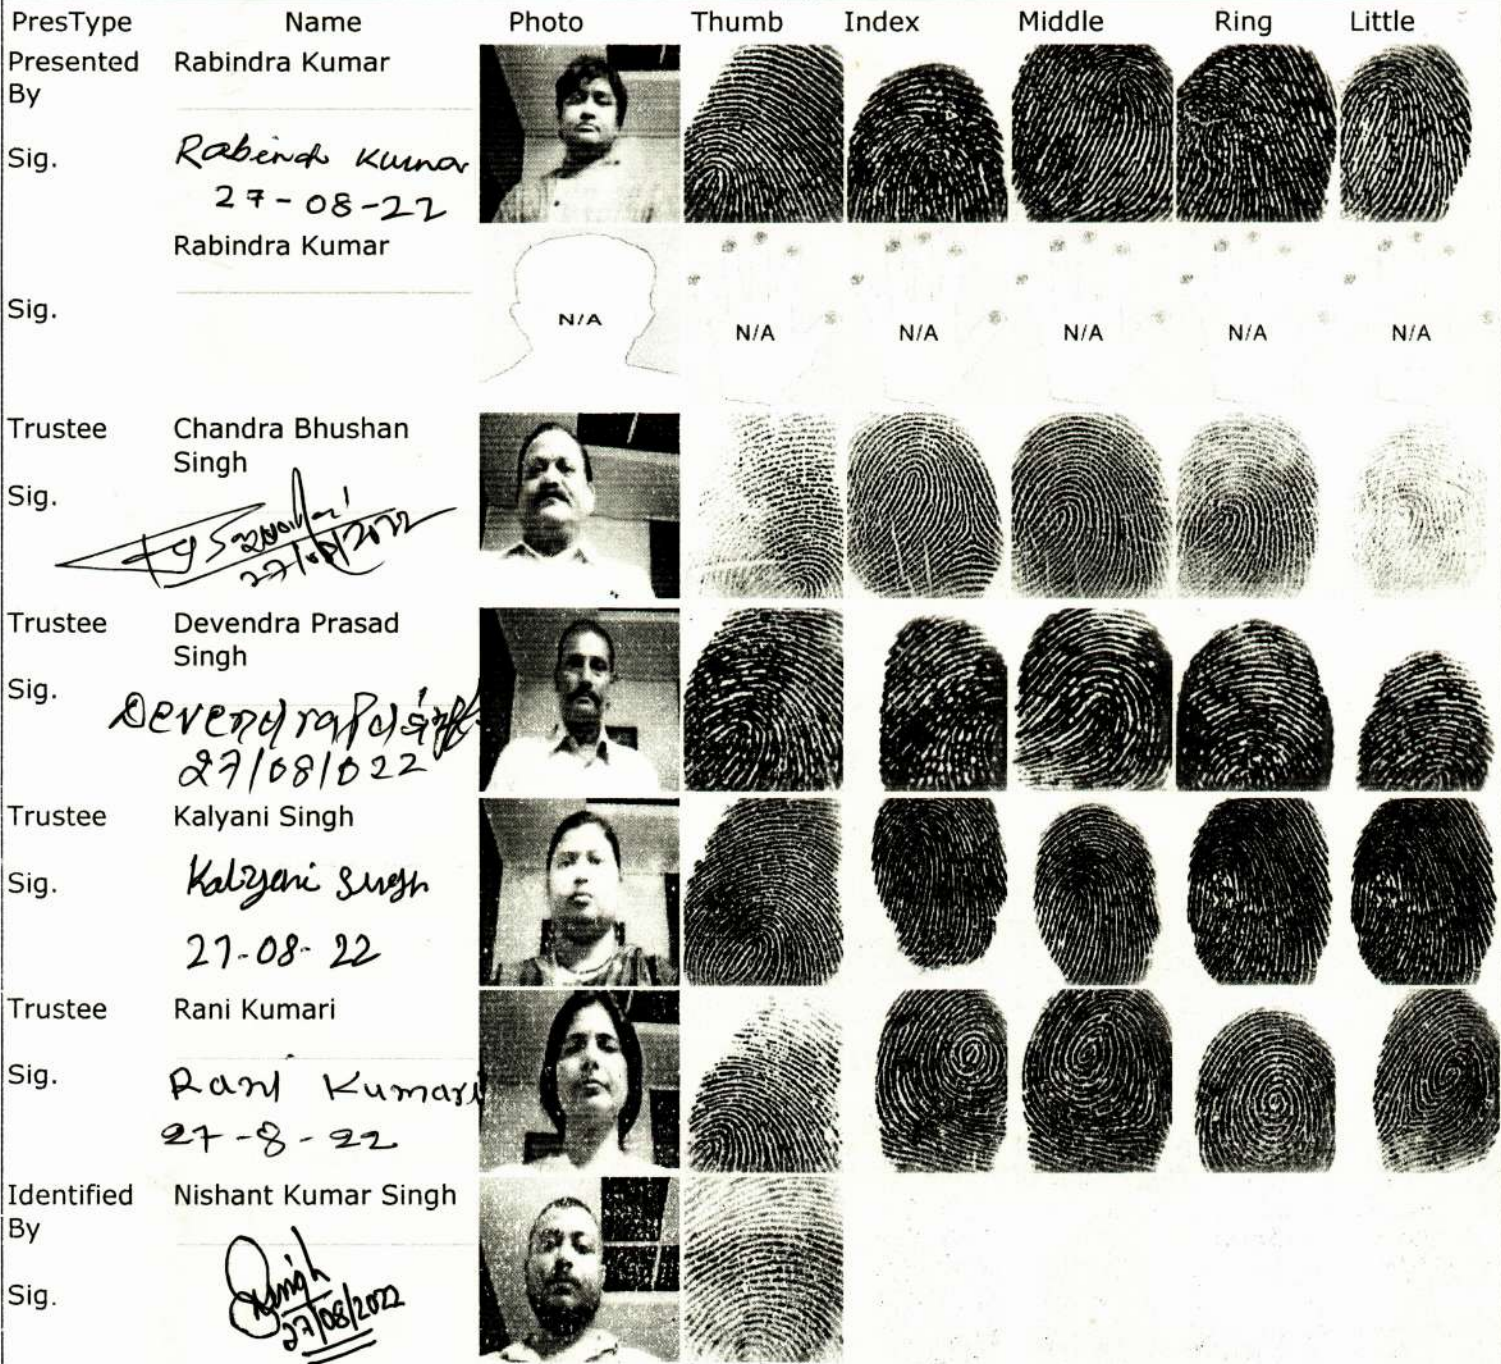 PresType Name Photo Thumb Index Middle Ring Little
Presented Rabindra Kumar
By
Sig. Rabindr Kumar
27-08-22
Rabindra Kumar
Sig.
N/A N/A N/A N/A N/A N/A
Trustee Chandra Bhushan
Singh
Sig.
27/08/2022
Trustee Devendra Prasad
Singh
Sig.
Devendra
27/08/022
Trustee Kalyani Singh
Sig. Kalyani Singh
27-08-22
Trustee Rani Kumari
Sig. Rani Kumari
27-8-22
Identified Nishant Kumar Singh
By
Sig.
27/08/2022